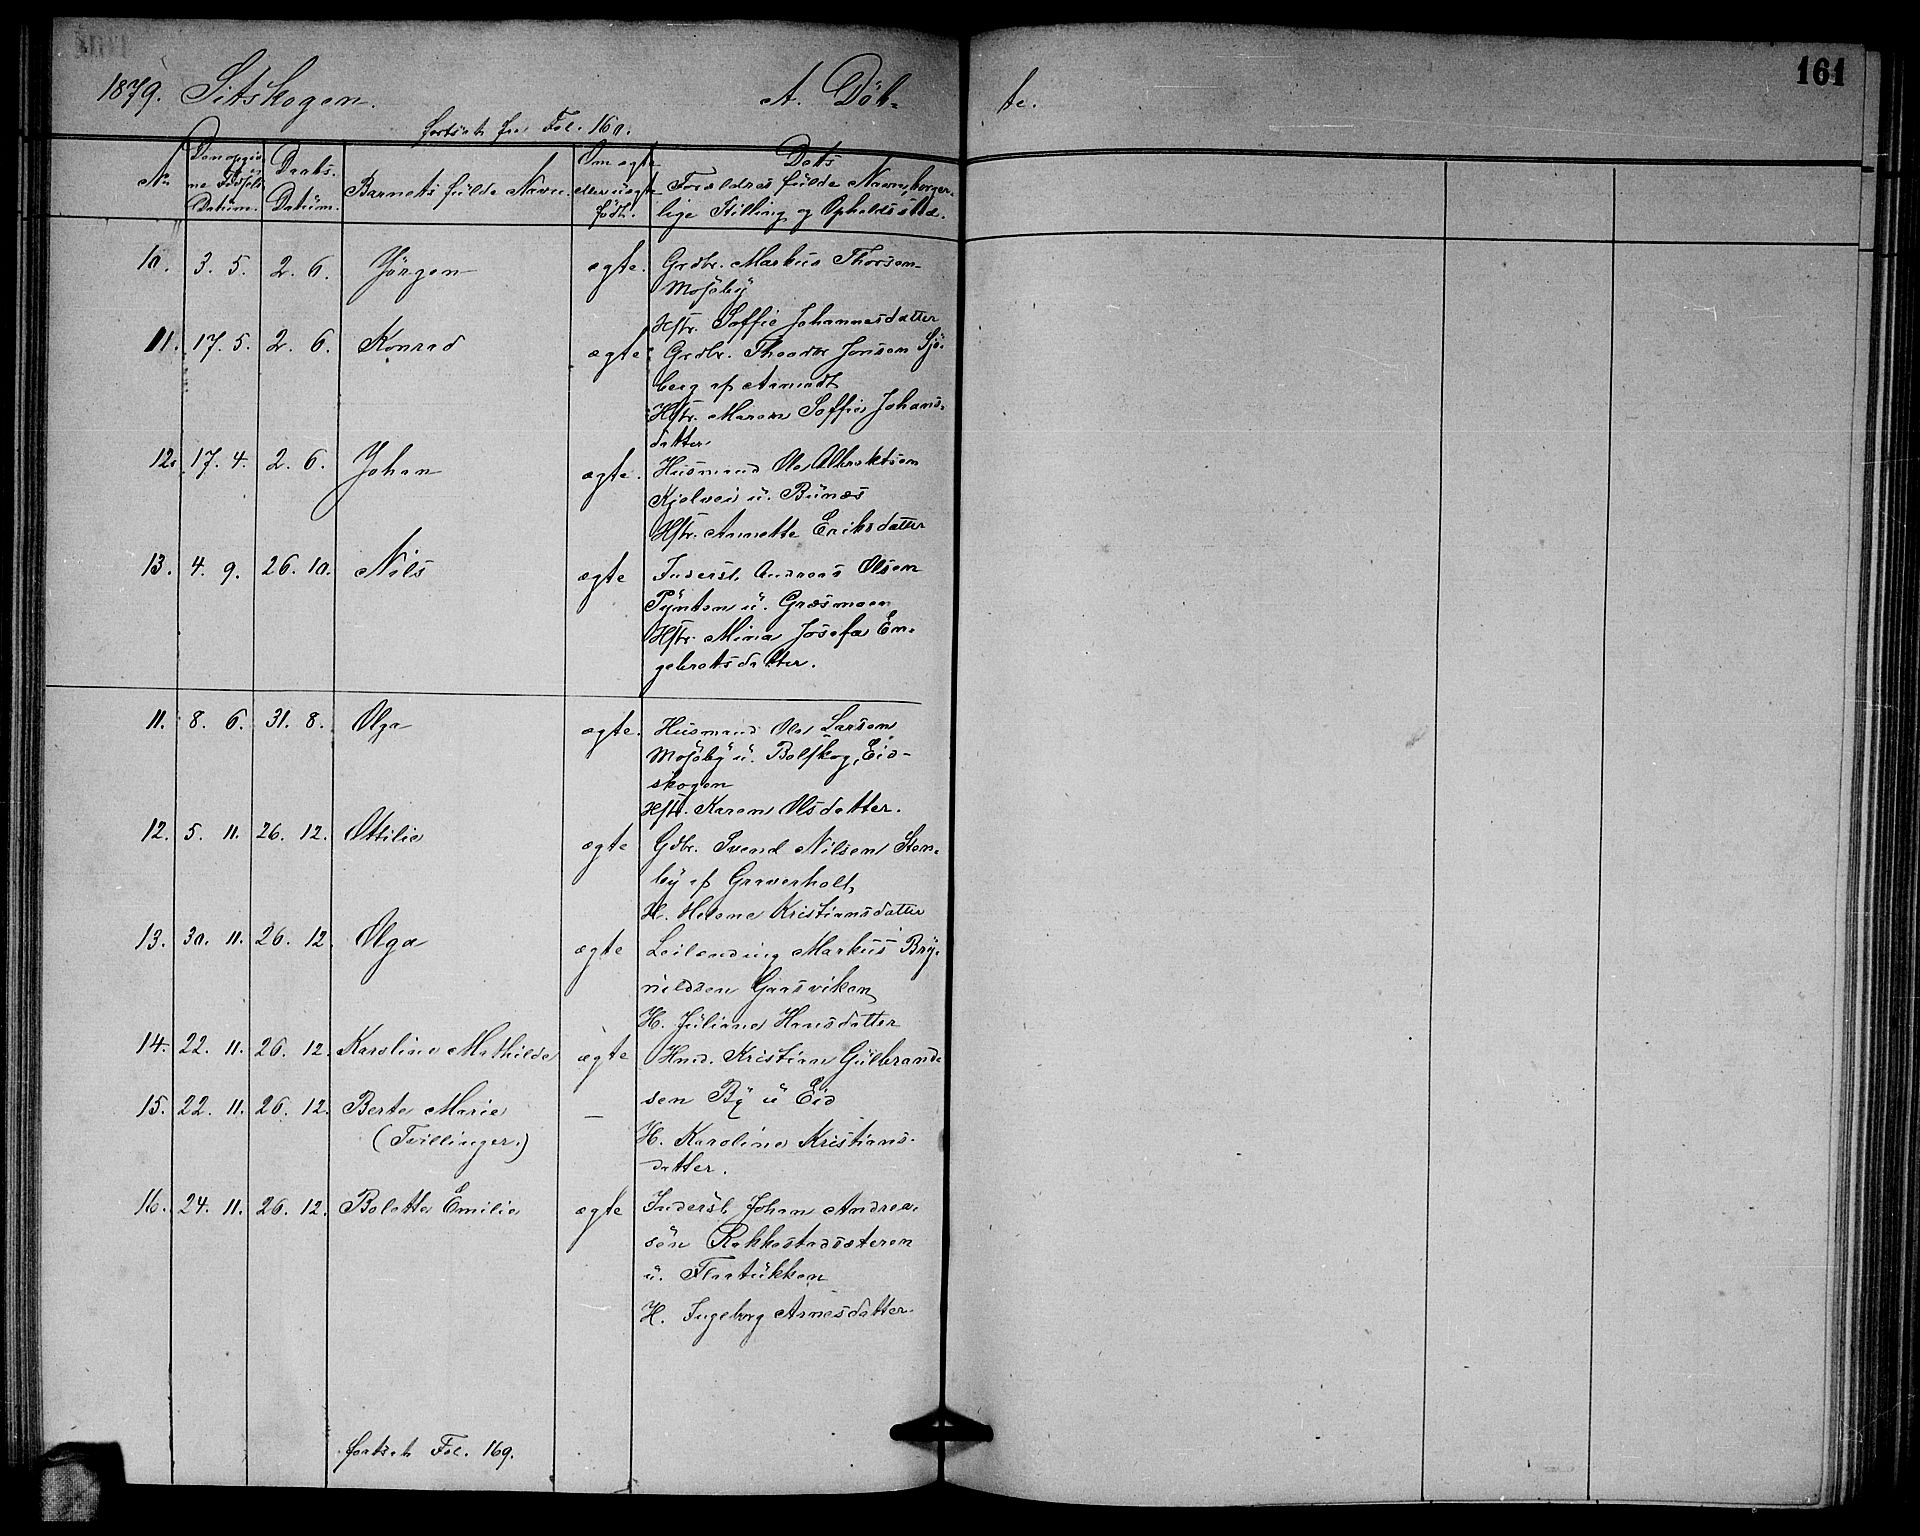 161
1879. Sitskogen. A. Döb- te.
fortsat fra Fol. 160.
No Den opgiv- ne Fødsels Datum. Daabs- Datum. Barnets fulde Navn. Om ægte eller uægte født. Dets Forældres fulde Navn, borger- lige Stilling og Opholdssted.
10. 3. 5. 2. 6. Jörgen ægte. Grdbr. Markus Thorsen
Mosöby
Hstr. Soffie Johannesdatter
11. 17. 5. 2. 6. Konrad ægte. Grdbr. Theodor Jonsen Sjö-
berg af
Hstr. Maren Soffie Johans-
datter
12. 17. 4. 2. 6. Johan ægte. Husmand Ole Albraktsen
Kjolvei u. Bunæs
Hstr. Annette Eriksdatter
13. 4. 9. 26. 10. Nils ægte Inderst. Andreas Olsen
Pynten u. Græsmoen
Hstr. Mina Josefa En-
gebretsdatter.
11. 8. 6. 31. 8. Olga ægte. Husmand Ole Larsen
Mosöby u. Bolfkog, Eid-
skogen
Hstr. Karen Olsdatter.
12. 5. 11. 26. 12. Ottilie ægte Gdbr. Svend Nilsen Sten-
by af Graverholt
H. Helene Kristiansdatter
13. 30. 11. 26. 12. Olga ægte Leilænding Markus Bry-
nildsen Gaasviken
H. Juliane Hansdatter
14. 22. 11. 26. 12. Karoline Mathilde ægte Hmd. Kristian Gulbrand-
15. 22. 11. 26. 12. Berte Marie — sen By u Eid
(Tvillinger.) H. Karoline Kristians-
datter.
16. 24. 11. 26. 12. Bolette Emilie ægte Inderst Johan Andrea-
sön Rakkestadsæteren
u. Flaatukken
H. Ingeborg Arnesdatter.
fortsat Fol. 169.